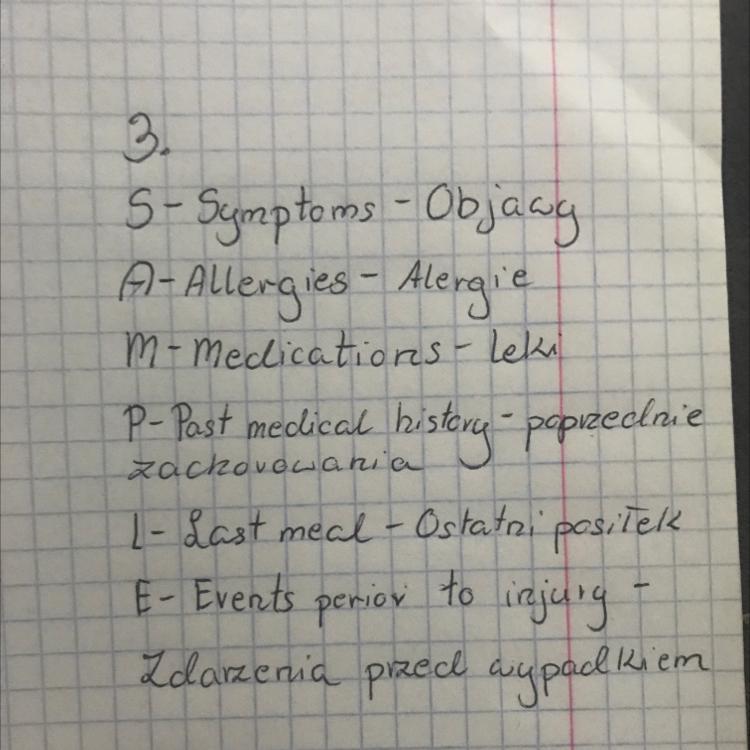 3.
S - Symptoms - Objawy
A - Allergies - Alergie
M - Medications - leki
P - Past medical history - poprzednie
zachorowania
L - Last meal - Ostatni posiłek
E - Events perior to injury -
Zdarzenia przed wypadkiem